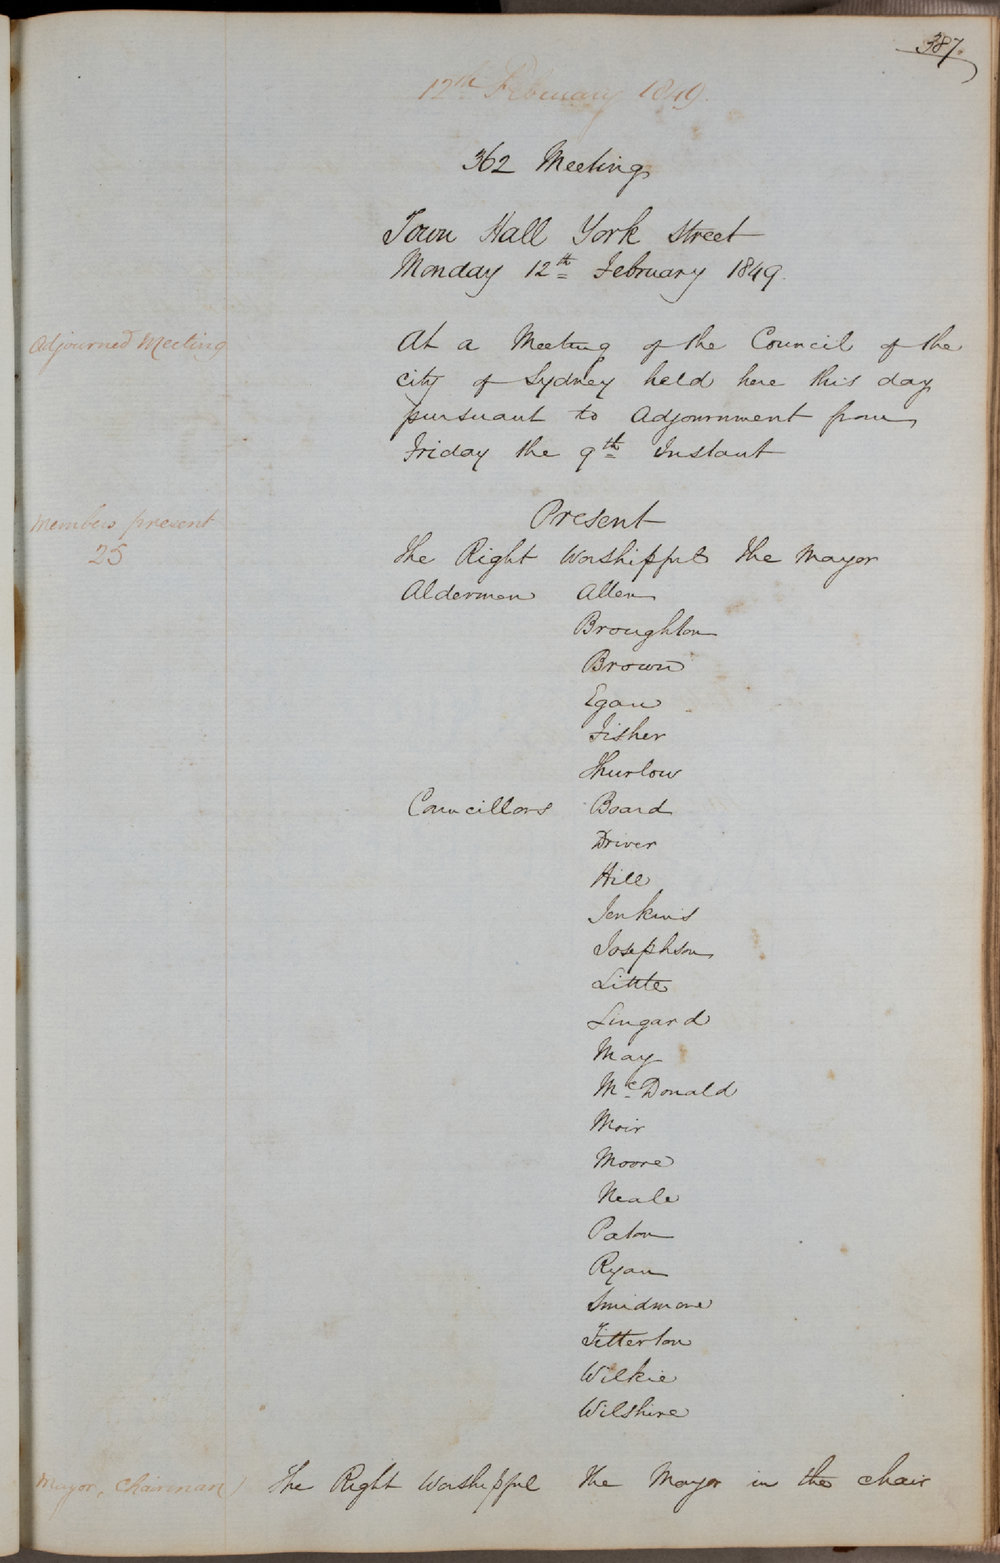 387.
12th February 1849.
362 Meeting
Town Hall York Street
Monday 12th February 1849.
Adjourned Meeting
At a Meeting of the Council of the
city of Sydney held here this day
pursuant to Adjournment from
Friday the 9th Instant
Members present
25
Present
The Right Worshipful The Mayor
Aldermen Allen
Broughton
Brown
Egan
Fisher
Thurlow
Councillors Board
Driver
Hill
Jenkins
Josephson
Little
Lingard
May
McDonald
Moir
Moore
Neale
Paton
Ryan
Smidmore
Titterton
Wilkie
Wilshire
Mayor, Chairman) The Right Worshipful the Mayor in the chair